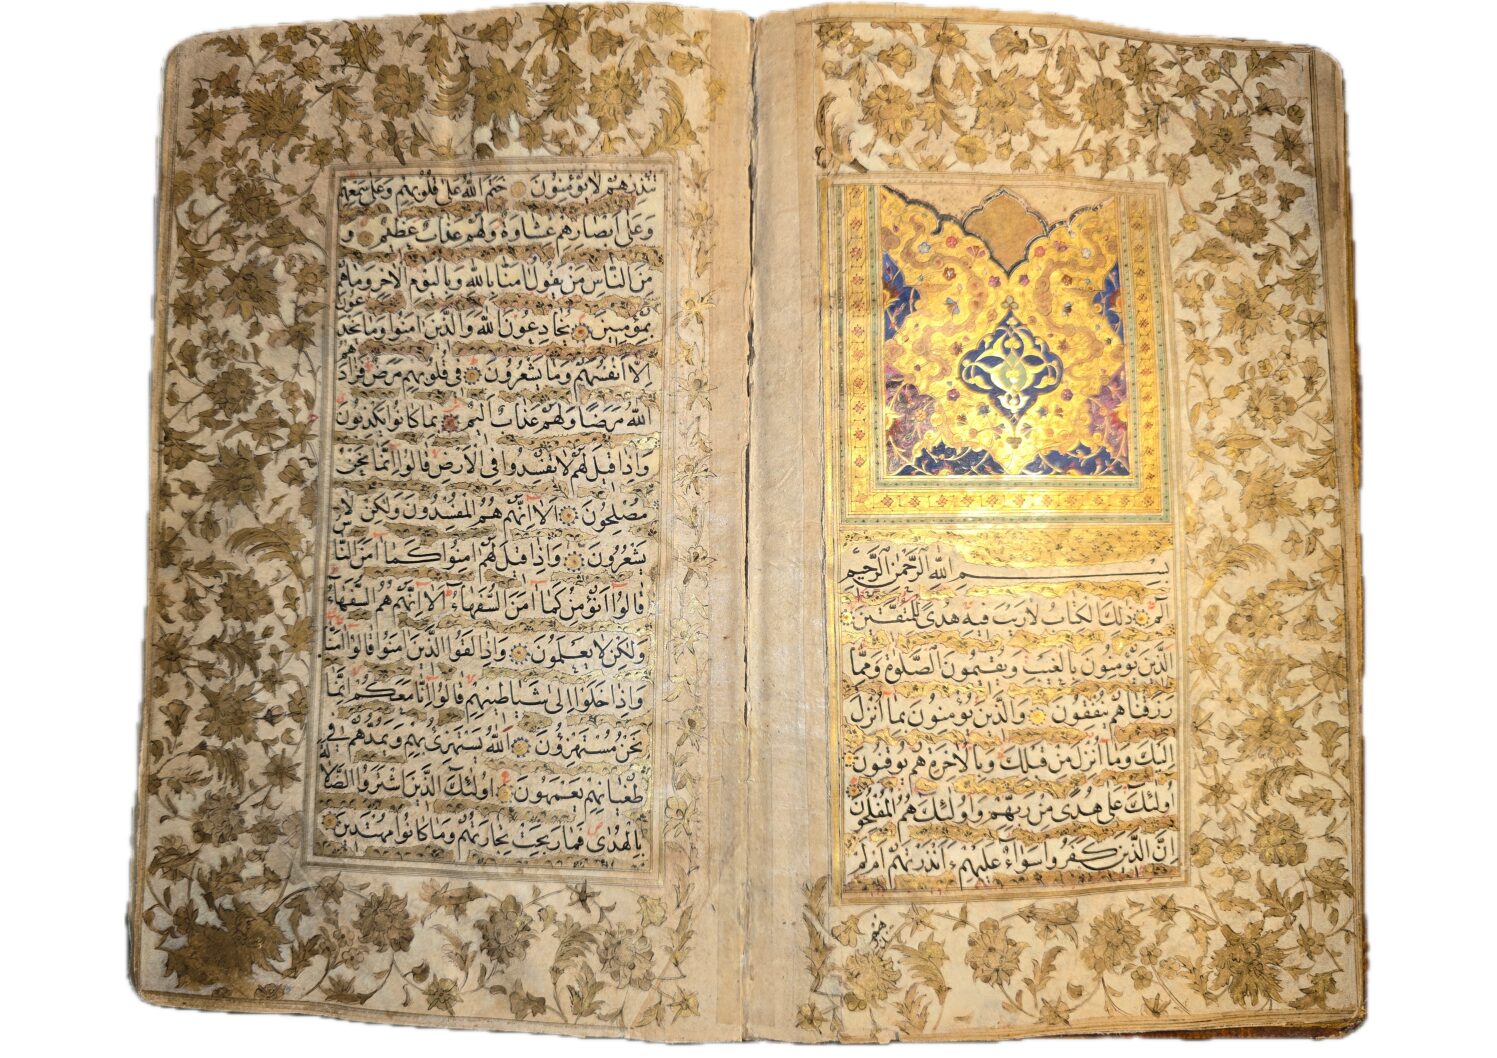 بِسْمِ اللهِ الرَّحْمٰنِ الرَّحِيْمِ
الٓمٓ ذٰلِكَ الكِتَابُ لَارَيْبَ فِيهِ هُدًى لِلْمُتَّقِينَ
الَّذِينَ يُؤْمِنُونَ بِالْغَيْبِ وَيُقِيمُونَ الصَّلٰوةَ وَمِمَّا
رَزَقْنَاهُمْ يُنْفِقُونَ وَالَّذِينَ يُؤْمِنُونَ بِمَا اُنْزِلَ
اِلَيْكَ وَمَا اُنْزِلَ مِنْ قَبْلِكَ وَبِالْاٰخِرَةِ هُمْ يُوقِنُونَ
اُولٰئِكَ عَلٰى هُدًى مِنْ رَبِّهِمْ وَاُولٰئِكَ هُمُ الْمُفْلِحُونَ
اِنَّ الَّذِينَ كَفَرُوا سَوَاءٌ عَلَيْهِمْ ءَاَنْذَرْتَهُمْ اَمْ لَمْ
تُنْذِرْهُمْ لَا يُؤْمِنُونَ خَتَمَ اللهُ عَلٰى قُلُوبِهِمْ وَعَلٰى سَمْعِهِمْ
وَعَلٰى اَبْصَارِهِمْ غِشَاوَةٌ وَلَهُمْ عَذَابٌ عَظِيمٌ وَ
مِنَ النَّاسِ مَنْ يَقُولُ اٰمَنَّا بِاللهِ وَبِالْيَوْمِ الْاٰخِرِ وَمَاهُمْ
بِمُؤْمِنِينَ يُخَادِعُونَ اللهَ وَالَّذِينَ اٰمَنُوا وَمَا يَخْدَعُونَ
اِلَّا اَنْفُسَهُمْ وَمَا يَشْعُرُونَ فِى قُلُوبِهِمْ مَرَضٌ فَزَادَهُمُ
اللهُ مَرَضًا وَلَهُمْ عَذَابٌ اَلِيمٌ بِمَا كَانُوا يَكْذِبُونَ
وَاِذَا قِيلَ لَهُمْ لَا تُفْسِدُوا فِى الْاَرْضِ قَالُوا اِنَّمَا نَحْنُ
مُصْلِحُونَ اَلَا اِنَّهُمْ هُمُ الْمُفْسِدُونَ وَلٰكِنْ لَا
يَشْعُرُونَ وَاِذَا قِيلَ لَهُمْ اٰمِنُوا كَمَا اٰمَنَ النَّاسُ
قَالُوا اَنُؤْمِنُ كَمَا اٰمَنَ السُّفَهَاءُ اَلَا اِنَّهُمْ هُمُ السُّفَهَاءُ
وَلٰكِنْ لَا يَعْلَمُونَ وَاِذَا لَقُوا الَّذِينَ اٰمَنُوا قَالُوا اٰمَنَّا
وَاِذَا خَلَوْا اِلٰى شَيَاطِينِهِمْ قَالُوا اِنَّا مَعَكُمْ اِنَّمَا
نَحْنُ مُسْتَهْزِؤُنَ اَللهُ يَسْتَهْزِئُ بِهِمْ وَيَمُدُّهُمْ فِى
طُغْيَانِهِمْ يَعْمَهُونَ اُولٰئِكَ الَّذِينَ اشْتَرَوُا الضَّلَالَةَ
بِالْهُدٰى فَمَا رَبِحَتْ تِجَارَتُهُمْ وَمَا كَانُوا مُهْتَدِينَ